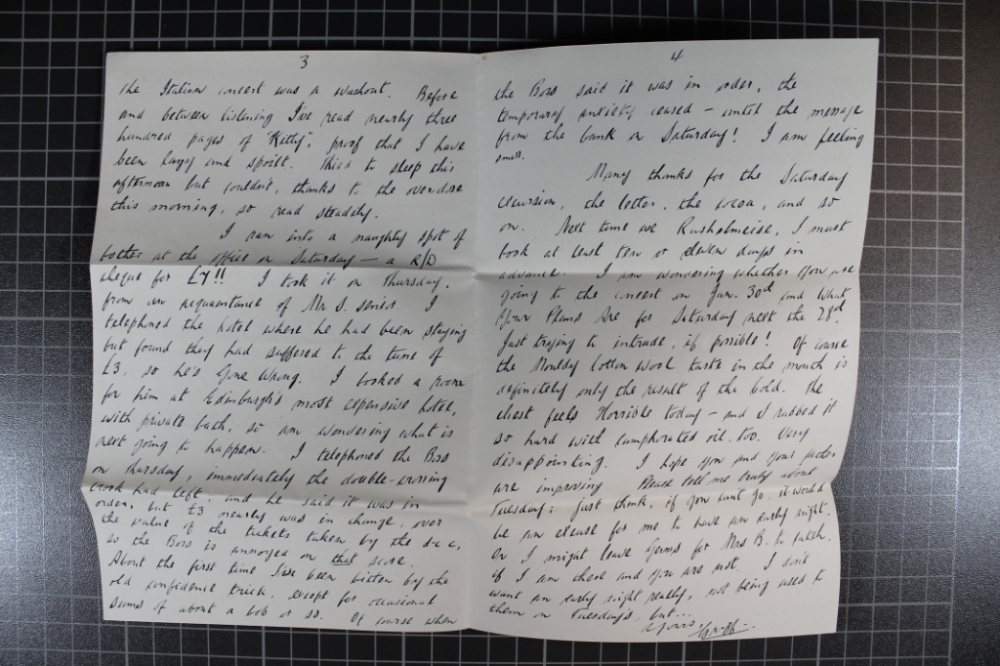 3
The Italian concert was a washout. Before
and between listening I've read nearly three
hundred pages of "Kitty", proof that I have
been lazy and spoilt. Tried to sleep this
afternoon but couldn't, thanks to the overdose
this morning, so read steadily.
I ran into a naughty spot of
bother at the office on Saturday — a R/D
cheque for £7!! I took it on Thursday,
from an acquaintance of Mr S. senior. I
telephoned the hotel where he had been staying
but found they had suffered to the tune of
£3, so he's gone wrong. I booked a room
for him at Edinburgh's most expensive hotel,
with private bath, so am wondering what is
next going to happen. I telephoned the Boss
on Thursday, immediately the double-crossing
crook had left, and he said it was in
order, but £3 nearly was in change, over
the value of the tickets taken by the d & c,
so the Boss is annoyed on that score.
About the first time I've been bitten by the
old confidence trick, except for occasional
sums of about a bob or so. Of course when
4
the Boss said it was in order, the
temporary anxiety ceased — until the message
from the bank on Saturday! I am feeling
small.
Many thanks for the Saturday
excursion, the letter, the cocoa, and so
on. Next time we Rusholmeise, I must
book at least ten or eleven days in
advance. I am wondering whether you are
going to the concert on Jan. 30th and what
your plans are for Saturday next the 28th.
Just trying to intrude, if possible! Of course
the Mouldy cotton wool taste in the mouth is
definitely only the result of the cold. The
chest feels Horrible today — and I rubbed it
so hard with camphorated oil, too. Very
disappointing. I hope you and your
are improving. Please tell me truly about
Tuesday; just think, if you can't go, it would
be an excuse for me to have an early night.
Or I might leave germs for Mrs B. to catch.
if I am there and you are not. I don't
want an early night really, not being used to
them on Tuesdays, but...
Yours,